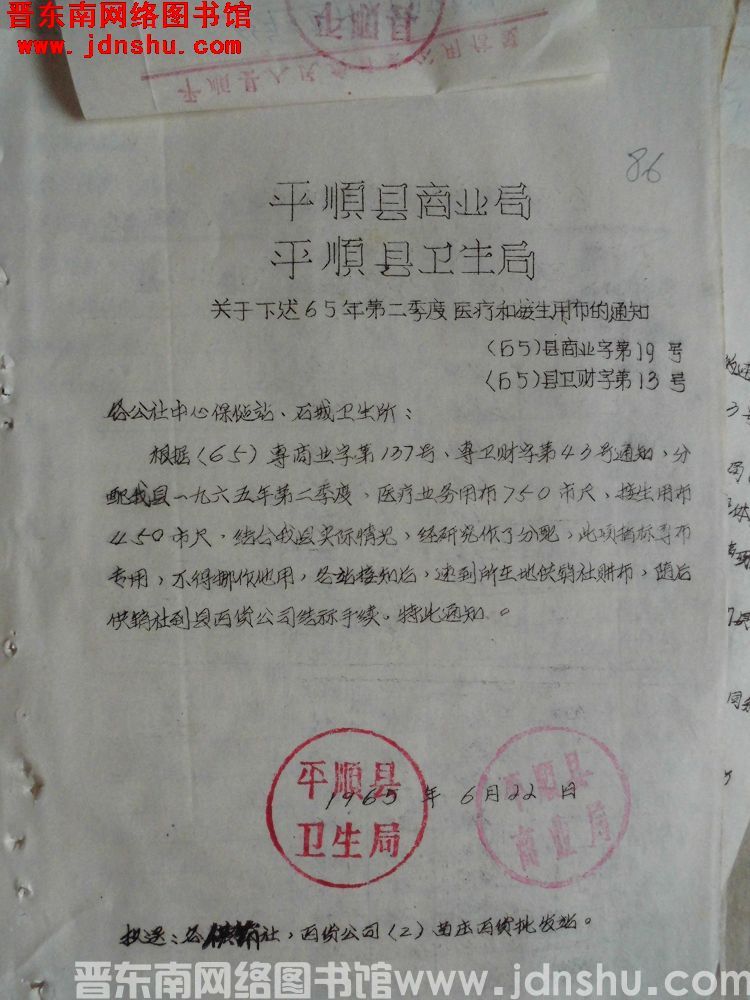 晋东南网络图书馆
www.jdnshu.com
平顺县
86
平順县商业局
平順县卫生局
关于下达65年第二季度医疗和接生用布的通知
(65)县商业字第19号
(65)县卫财字第13号
各公社中心保健站、石城卫生所：
根据(65)専商业字第137号、専卫财字第43号通知，分
配我县一九六五年第二季度，医疗业务用布750市尺，接生用布
450市尺，结合我县实际情况，经研究作了分配，此项指标専布
专用，不得挪作他用，各站接知后，速到所在地供销社购布，随后
供销社到县百货公司结标手续。特此通知。
平順县
卫生局
平順县
商业局
1965年6月22日
抄送：各供销社，百货公司(2)苗庄百货批发站。
晋东南网络图书馆www.jdnshu.com